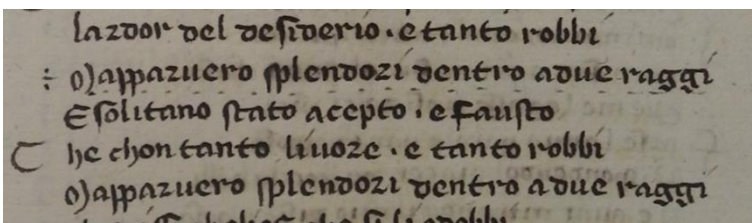 lardor del desiderio · e tanto robbi
Mapparuero splendori dentro a due raggi
E solitano stato acepto · e fausto
C he chon tanto liuore · e tanto robbi
Mapparuero splendori dentro a due raggi